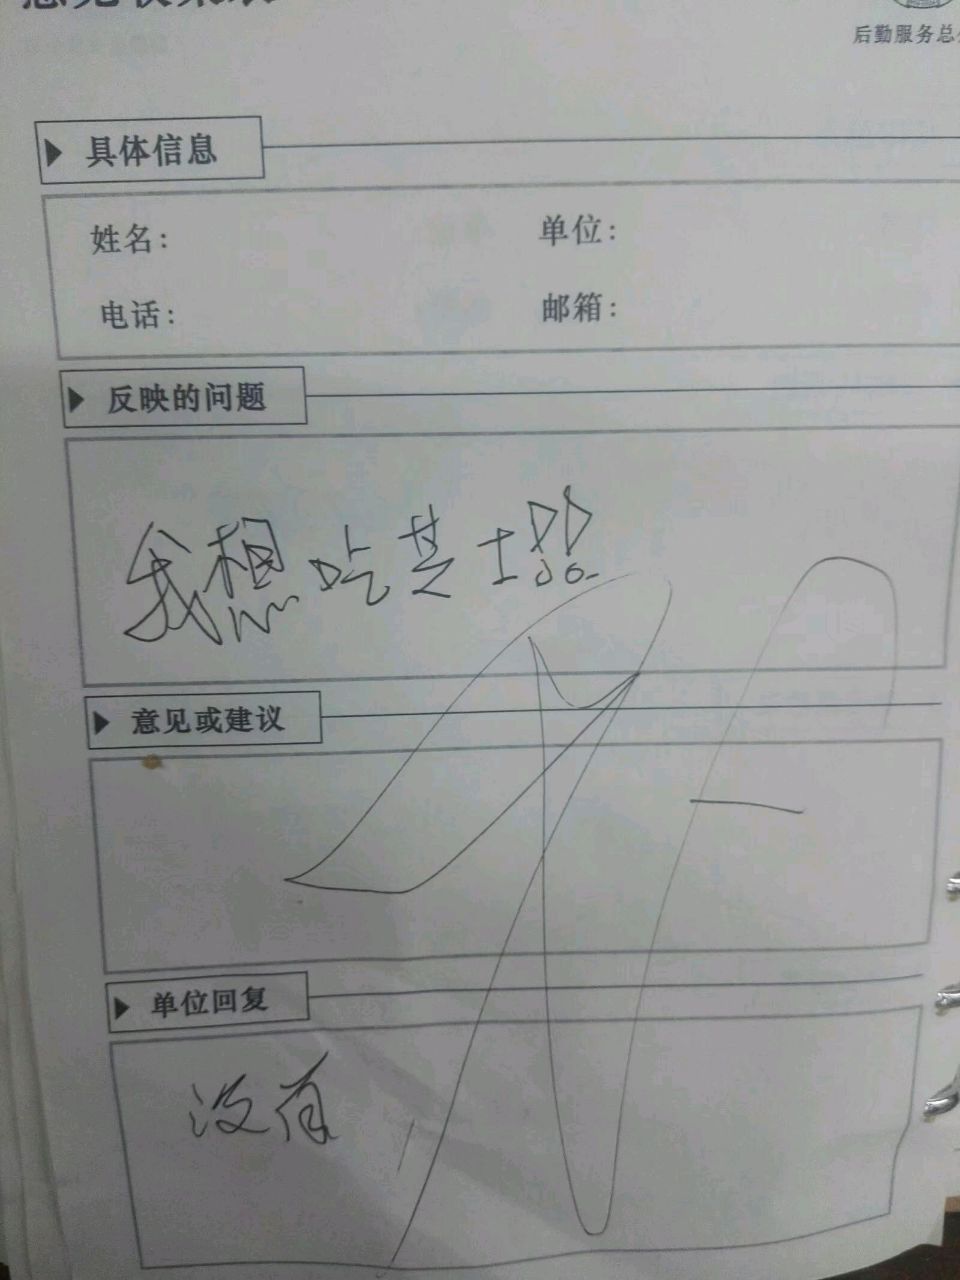 后勤服务总
具体信息
姓名: 单位:
电话: 邮箱:
反映的问题
我想吃芝士
意见或建议
单位回复
没有